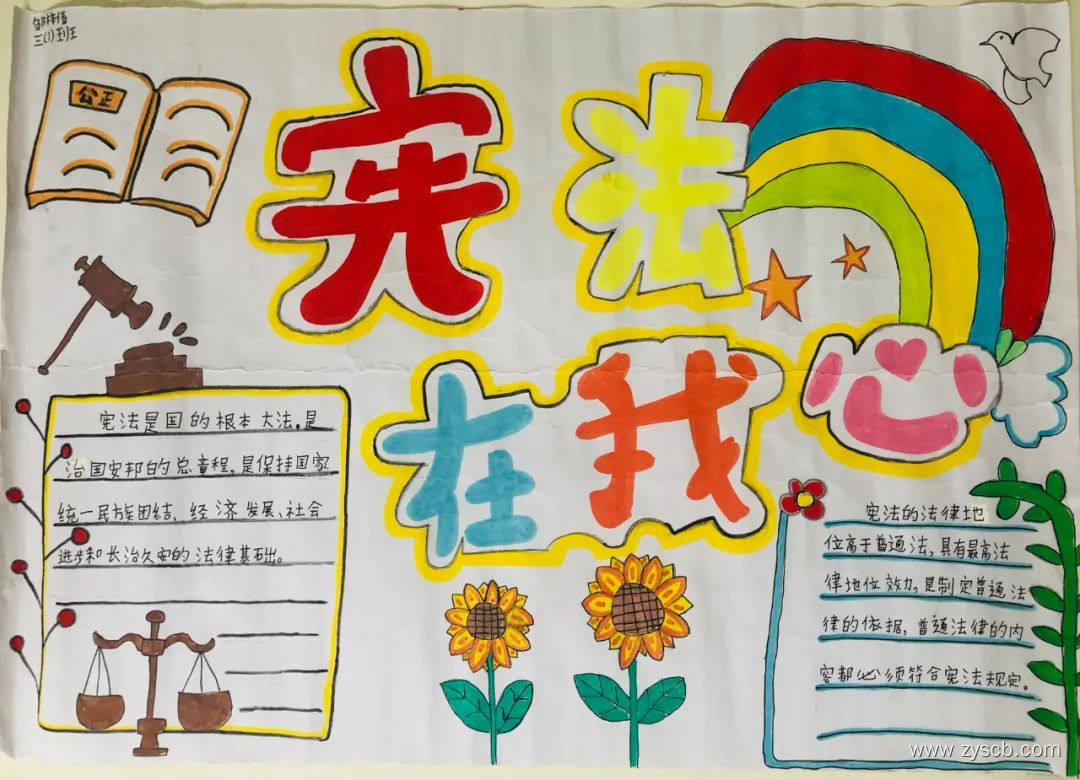 三(1)班
公正
宪法
在我心
宪法是国的根本大法,是
治国安邦的总章程,是保持国家
统一民族团结、经济发展、社会
进步和长治久安的法律基础。
宪法的法律地
位高于普通法,具有最高法
律地位效力,是制定普通法
律的依据,普通法律的内
容都必须符合宪法规定。
www.zyscb.com